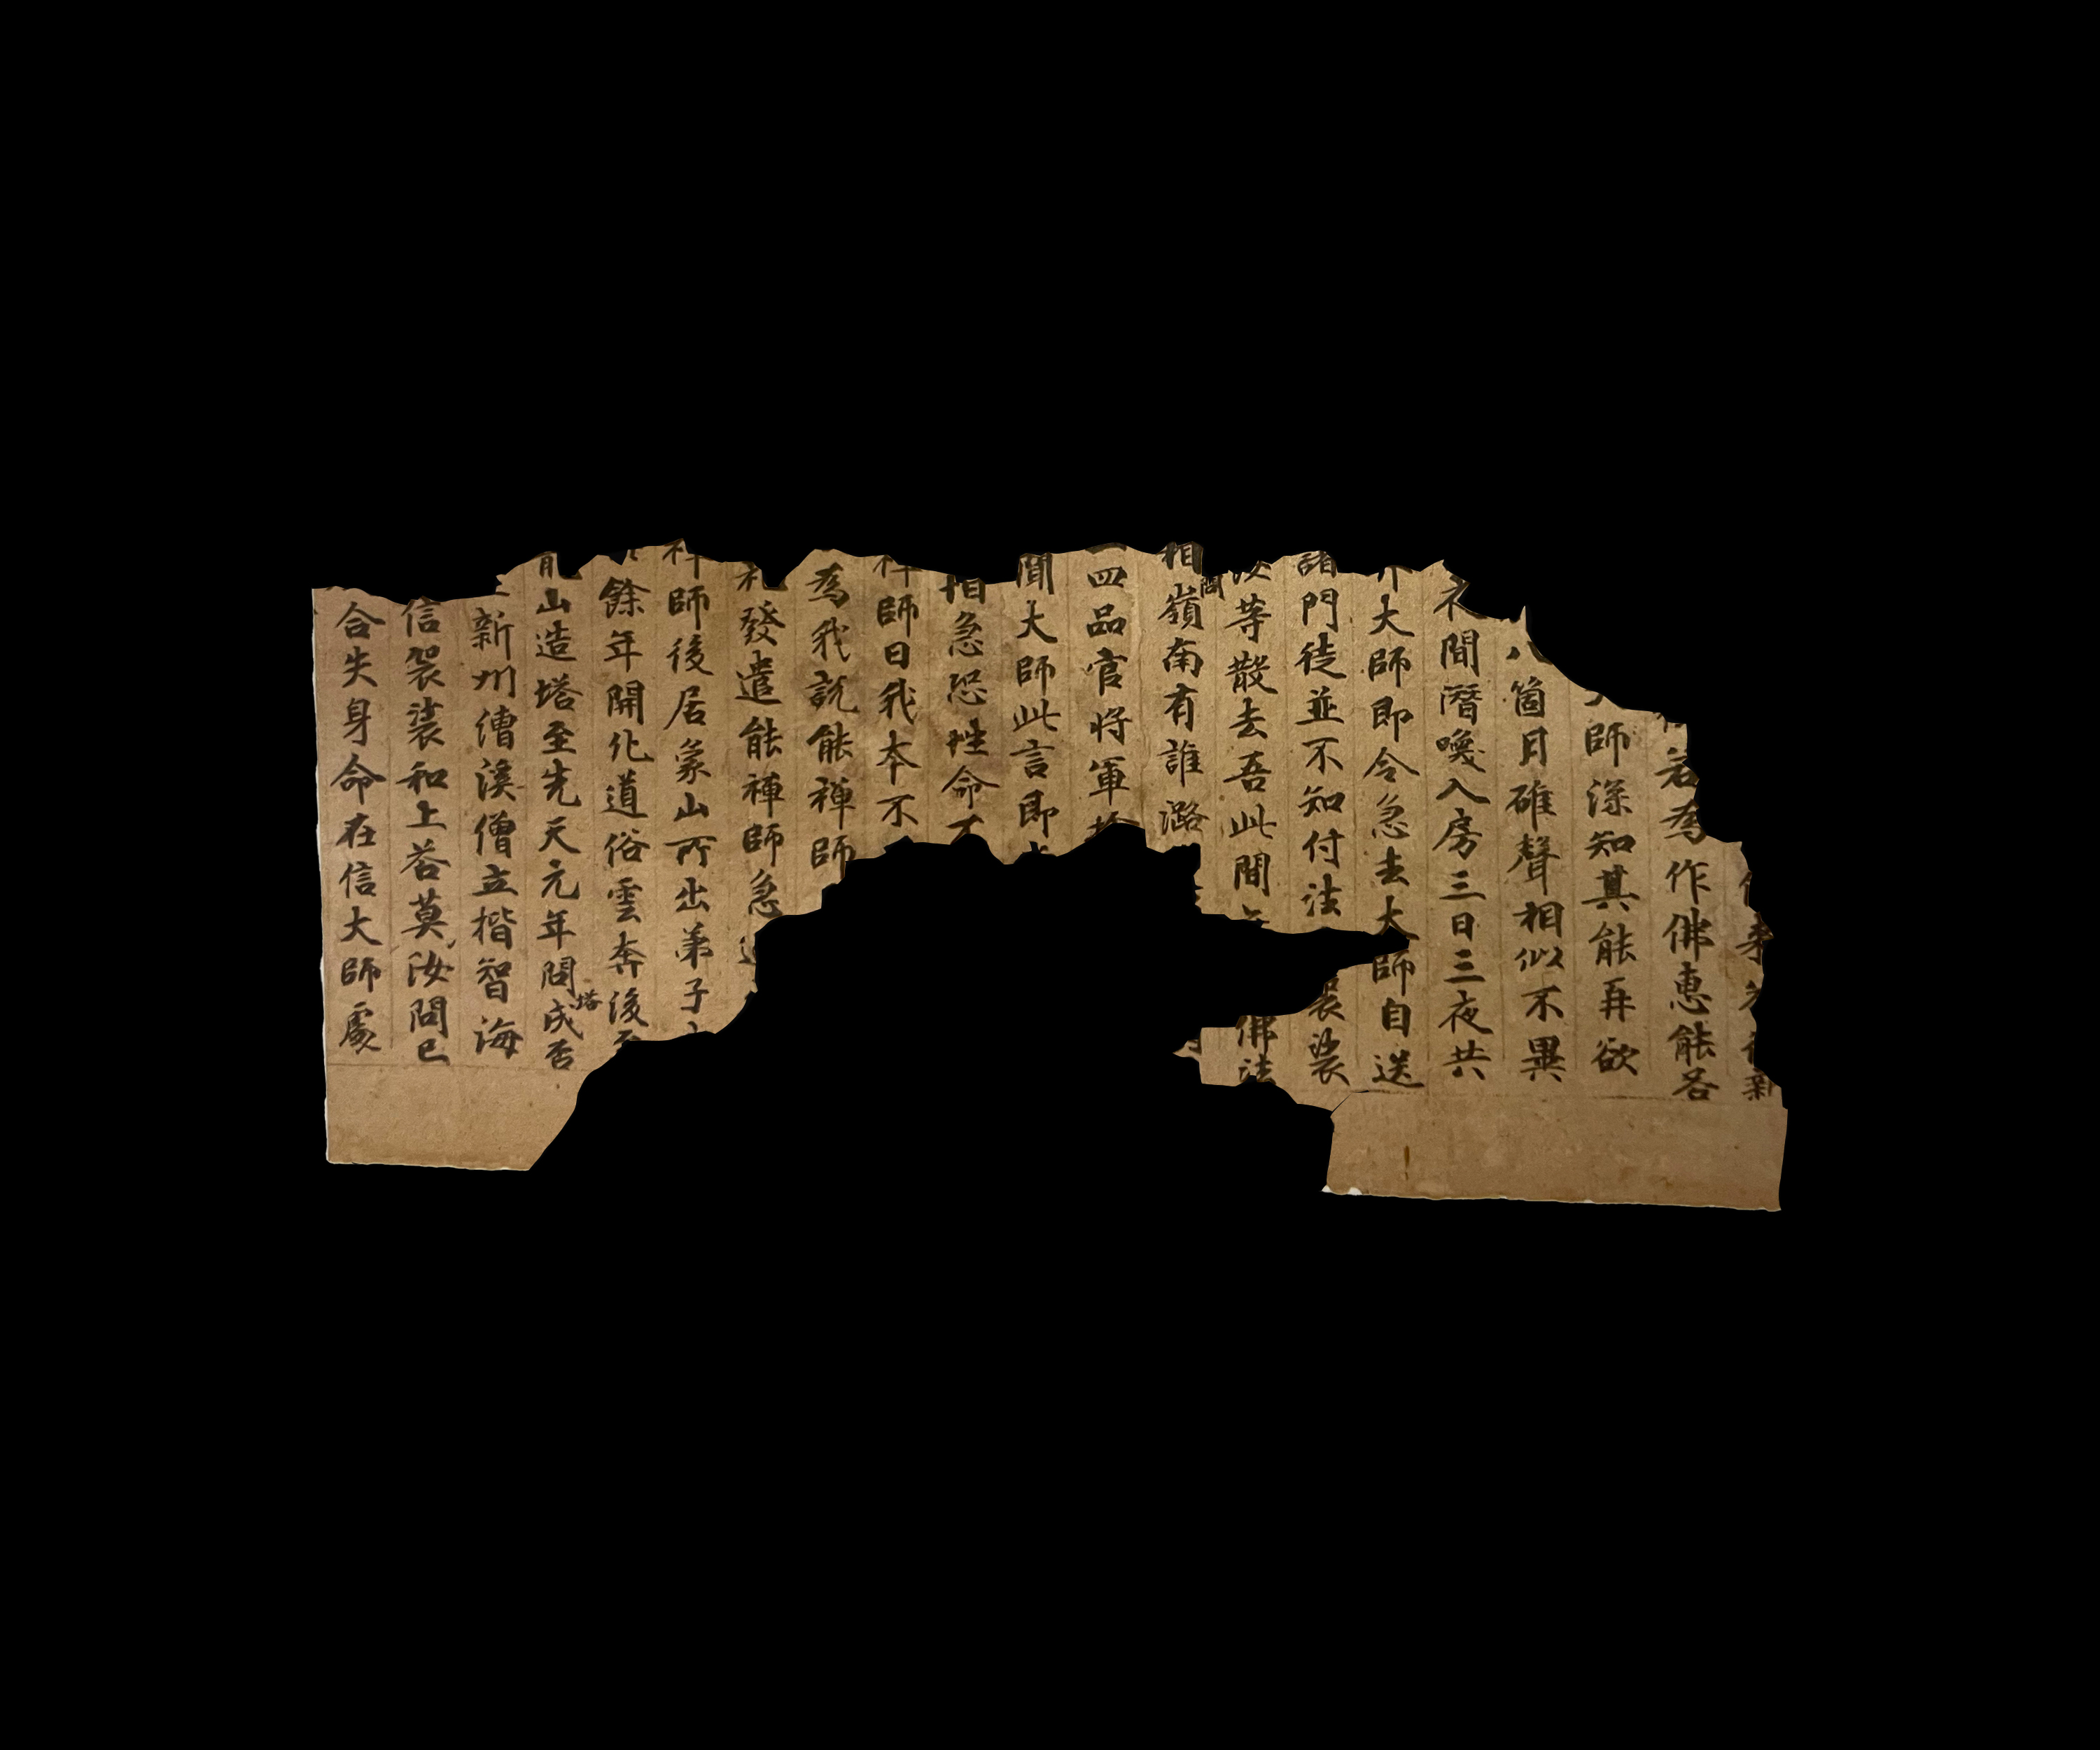 新
若為作佛惠能答
師深知其能再欲
八箇月碓聲相似不異
衣間潛喚入房三日三夜共
大師即令急去大師自送
諸門徒並不知付法袈裟
汝等散去吾此間佛法
相嶺南有誰潞
間
四品官將軍
聞大師此言即
怕急恐性命不
師曰我本不
為我說能禪師
發遣能禪師急
師後居象山所出弟子
餘年開化道俗雲奔後
龍山造塔至先天元年問成否
塔
新州漕溪僧立楷智海
信袈裟和上答莫汝問已
合失身命在信大師處